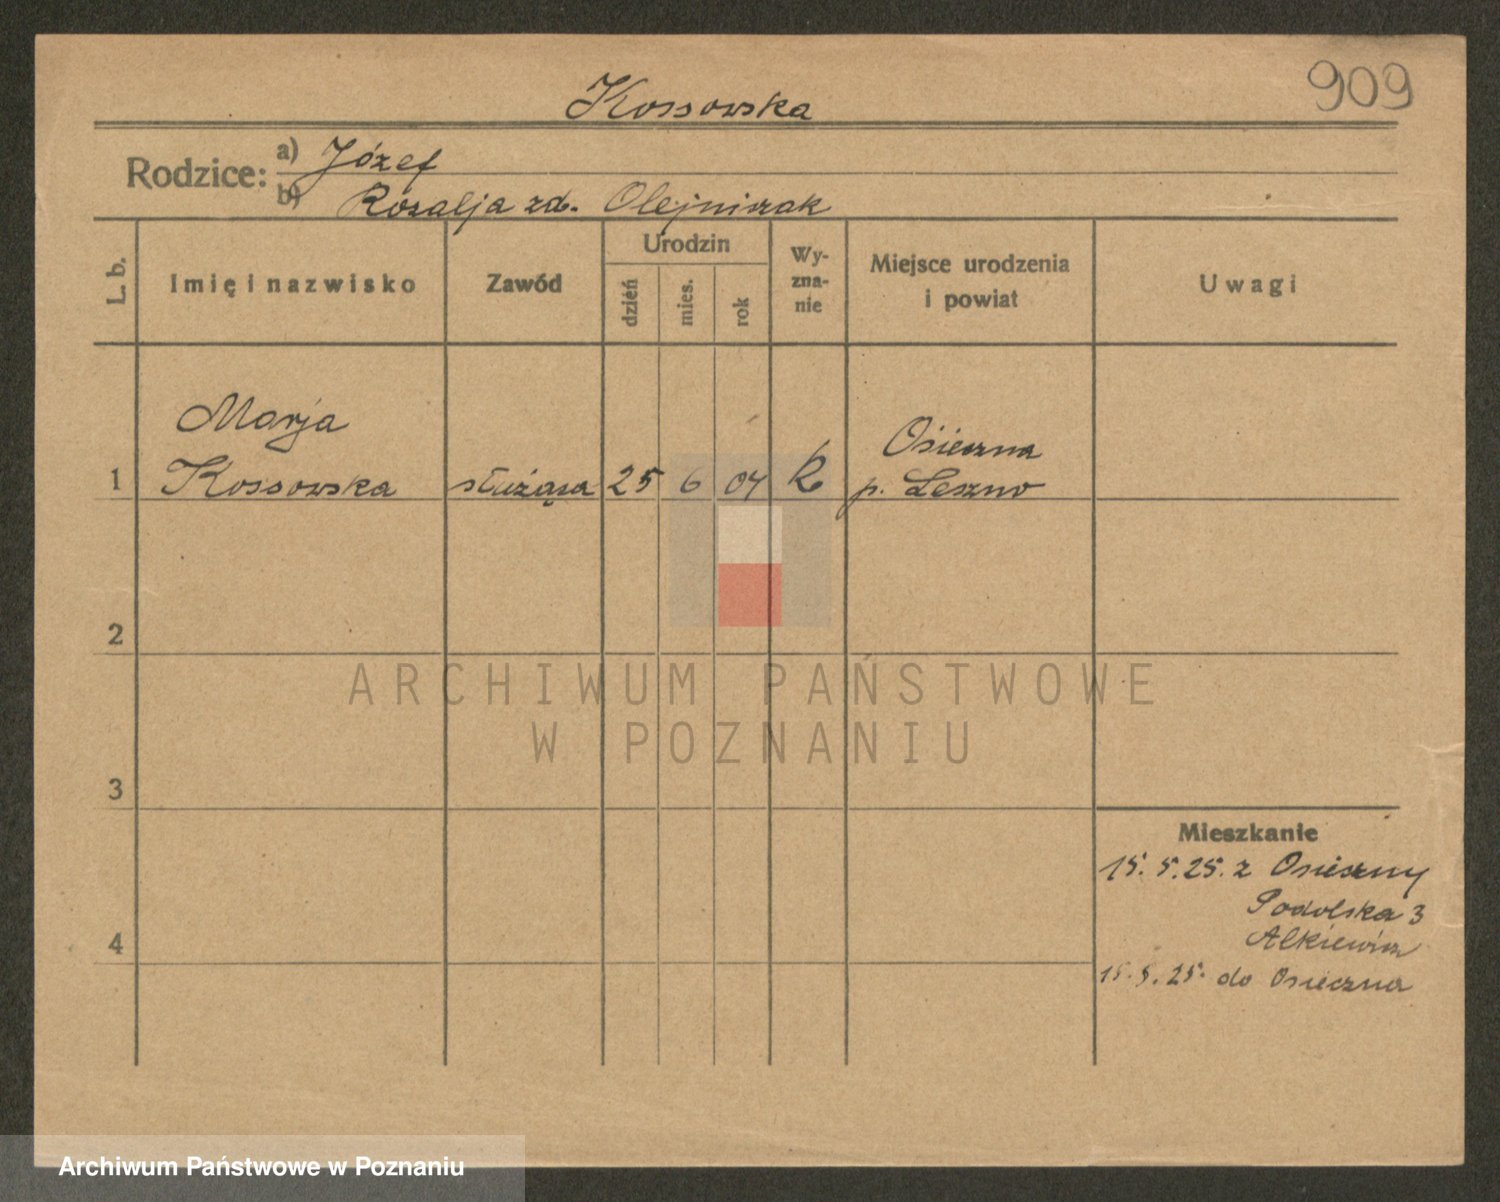 909
Kossowska
Rodzice: a) Józef
b) Rozalja zd. Olejniczak
L. b.
Imię i nazwisko
Zawód
Urodzin
dzień
mies.
rok
Wy-
zna-
nie
Miejsce urodzenia
i powiat
Uwagi
Marja
Osieczna
1 Kossowska służąca 25 6 04 k p. Leszno
2
ARCHIWUM PAŃSTWOWE
W POZNANIU
3
Mieszkanie
15.5.25. z Osieczny
Podolska 3
Alkiewicz
4
15.5.25. do Osieczna
Archiwum Państwowe w Poznaniu